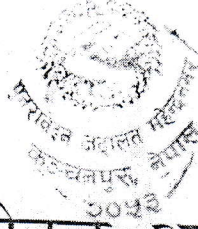 पुनरावेदन अदालत महेन्द्रनगर
कञ्चनपुर, नेपाल
२०५३